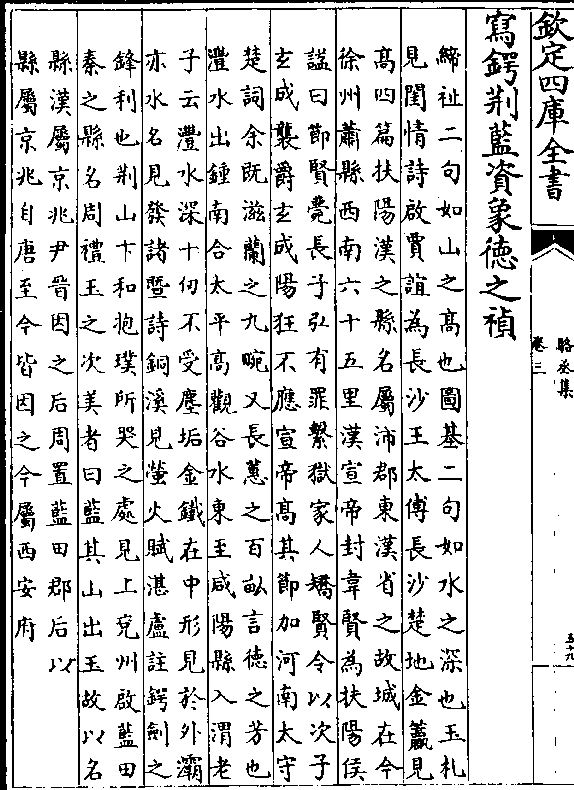 欽定四庫全書
駱丞集
卷三
五十九
寫鍔荆藍資象德之禎
締祉二句如山之髙也圖基二句如水之深也玉札
見閨情詩啟賈誼為長沙王太傅長沙楚地金籯見
髙四篇扶陽漢之縣名屬沛郡東漢省之故城在今
徐州蕭縣西南六十五里漢宣帝封韋賢為扶陽侯
諡曰節賢薨長子弘有罪繫獄家人矯賢令以次子
玄成襲爵玄成陽狂不應宣帝髙其節加河南太守
楚詞余既滋蘭之九畹又長蕙之百畝言德之芳也
灃水出鍾南合太平髙觀谷水東至咸陽縣入渭老
子云灃水深十仞不受塵垢金鐵在中形見於外灞
亦水名見發諸暨詩銅溪見螢火賦湛盧註鍔劍之
鋒利也荆山卞和抱璞所哭之處見上兗州啟藍田
秦之縣名周禮玉之次美者曰藍其山出玉故以名
縣漢屬京兆尹晉因之后周置藍田郡后以
縣屬京兆自唐至今皆因之今屬西安府